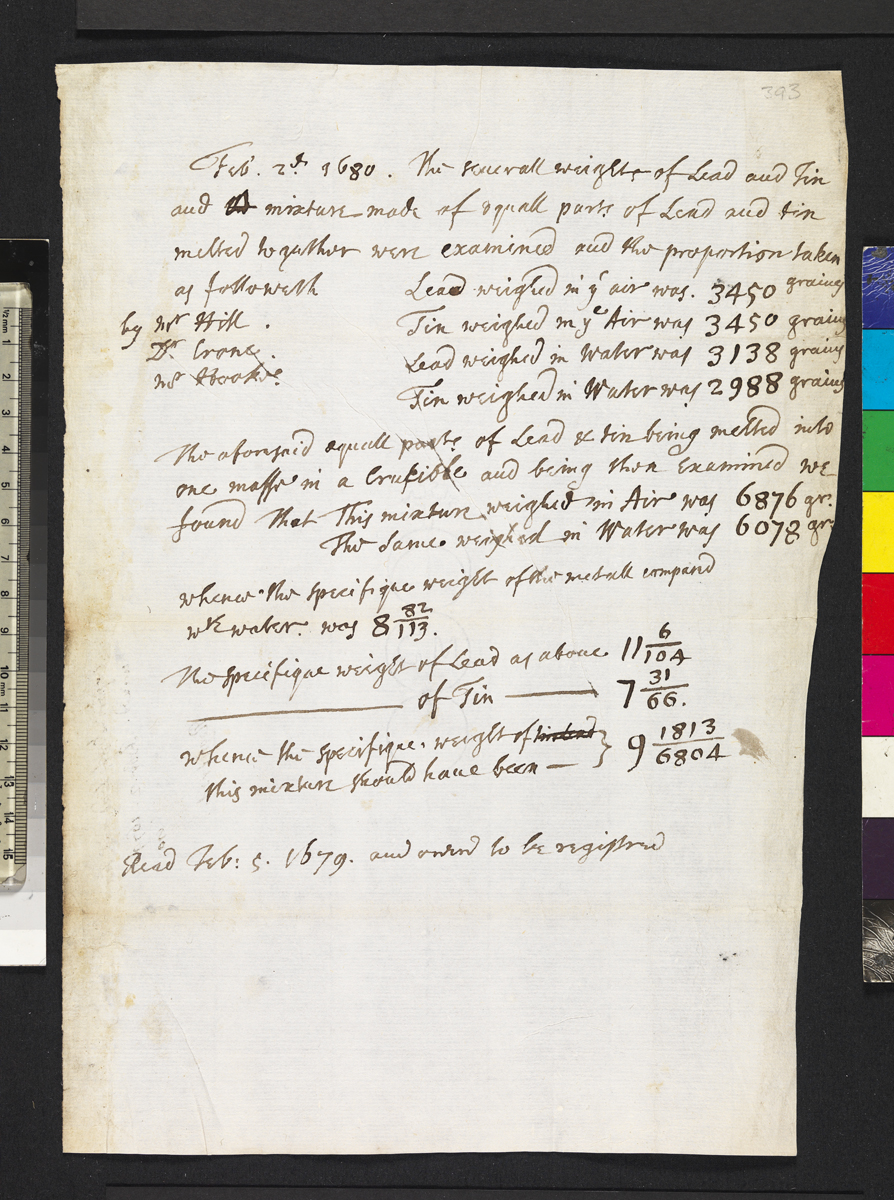 393
Feb. 2d. 1680. The severall weights of Lead and Tin
and mixture made of equall parts of Lead and tin
melted togather were examined and the proportion taken
as followeth Lead weighed in ye air was. 3450 grains
by Mr Hill. Tin weighed in ye Air was 3450 grains
Dr. Crone. Lead weighed in water was 3138 grains
Mr Hooke. Tin weighed in Water was 2988 grains
The aforesaid equall parts of Lead & tin being melted into
one masse in a Crucible and being then Examined we
found that This mixture weighed in Air was 6876 gr.
The same weighed in Water was 6078 gr.
whence the specifique weight of the metall compard
wth water. was 8 82/113.
The specifique weight of Lead as above 11 6/104
of Tin 7 31/66.
whence the specifique weight of
this mixture should have been } 9 1813/6804
Read Feb: 5. 1679. and orderd to be registred
1/2 mm 1 2 3 4 5 6 7 8 9 10 11 12 13 14 15